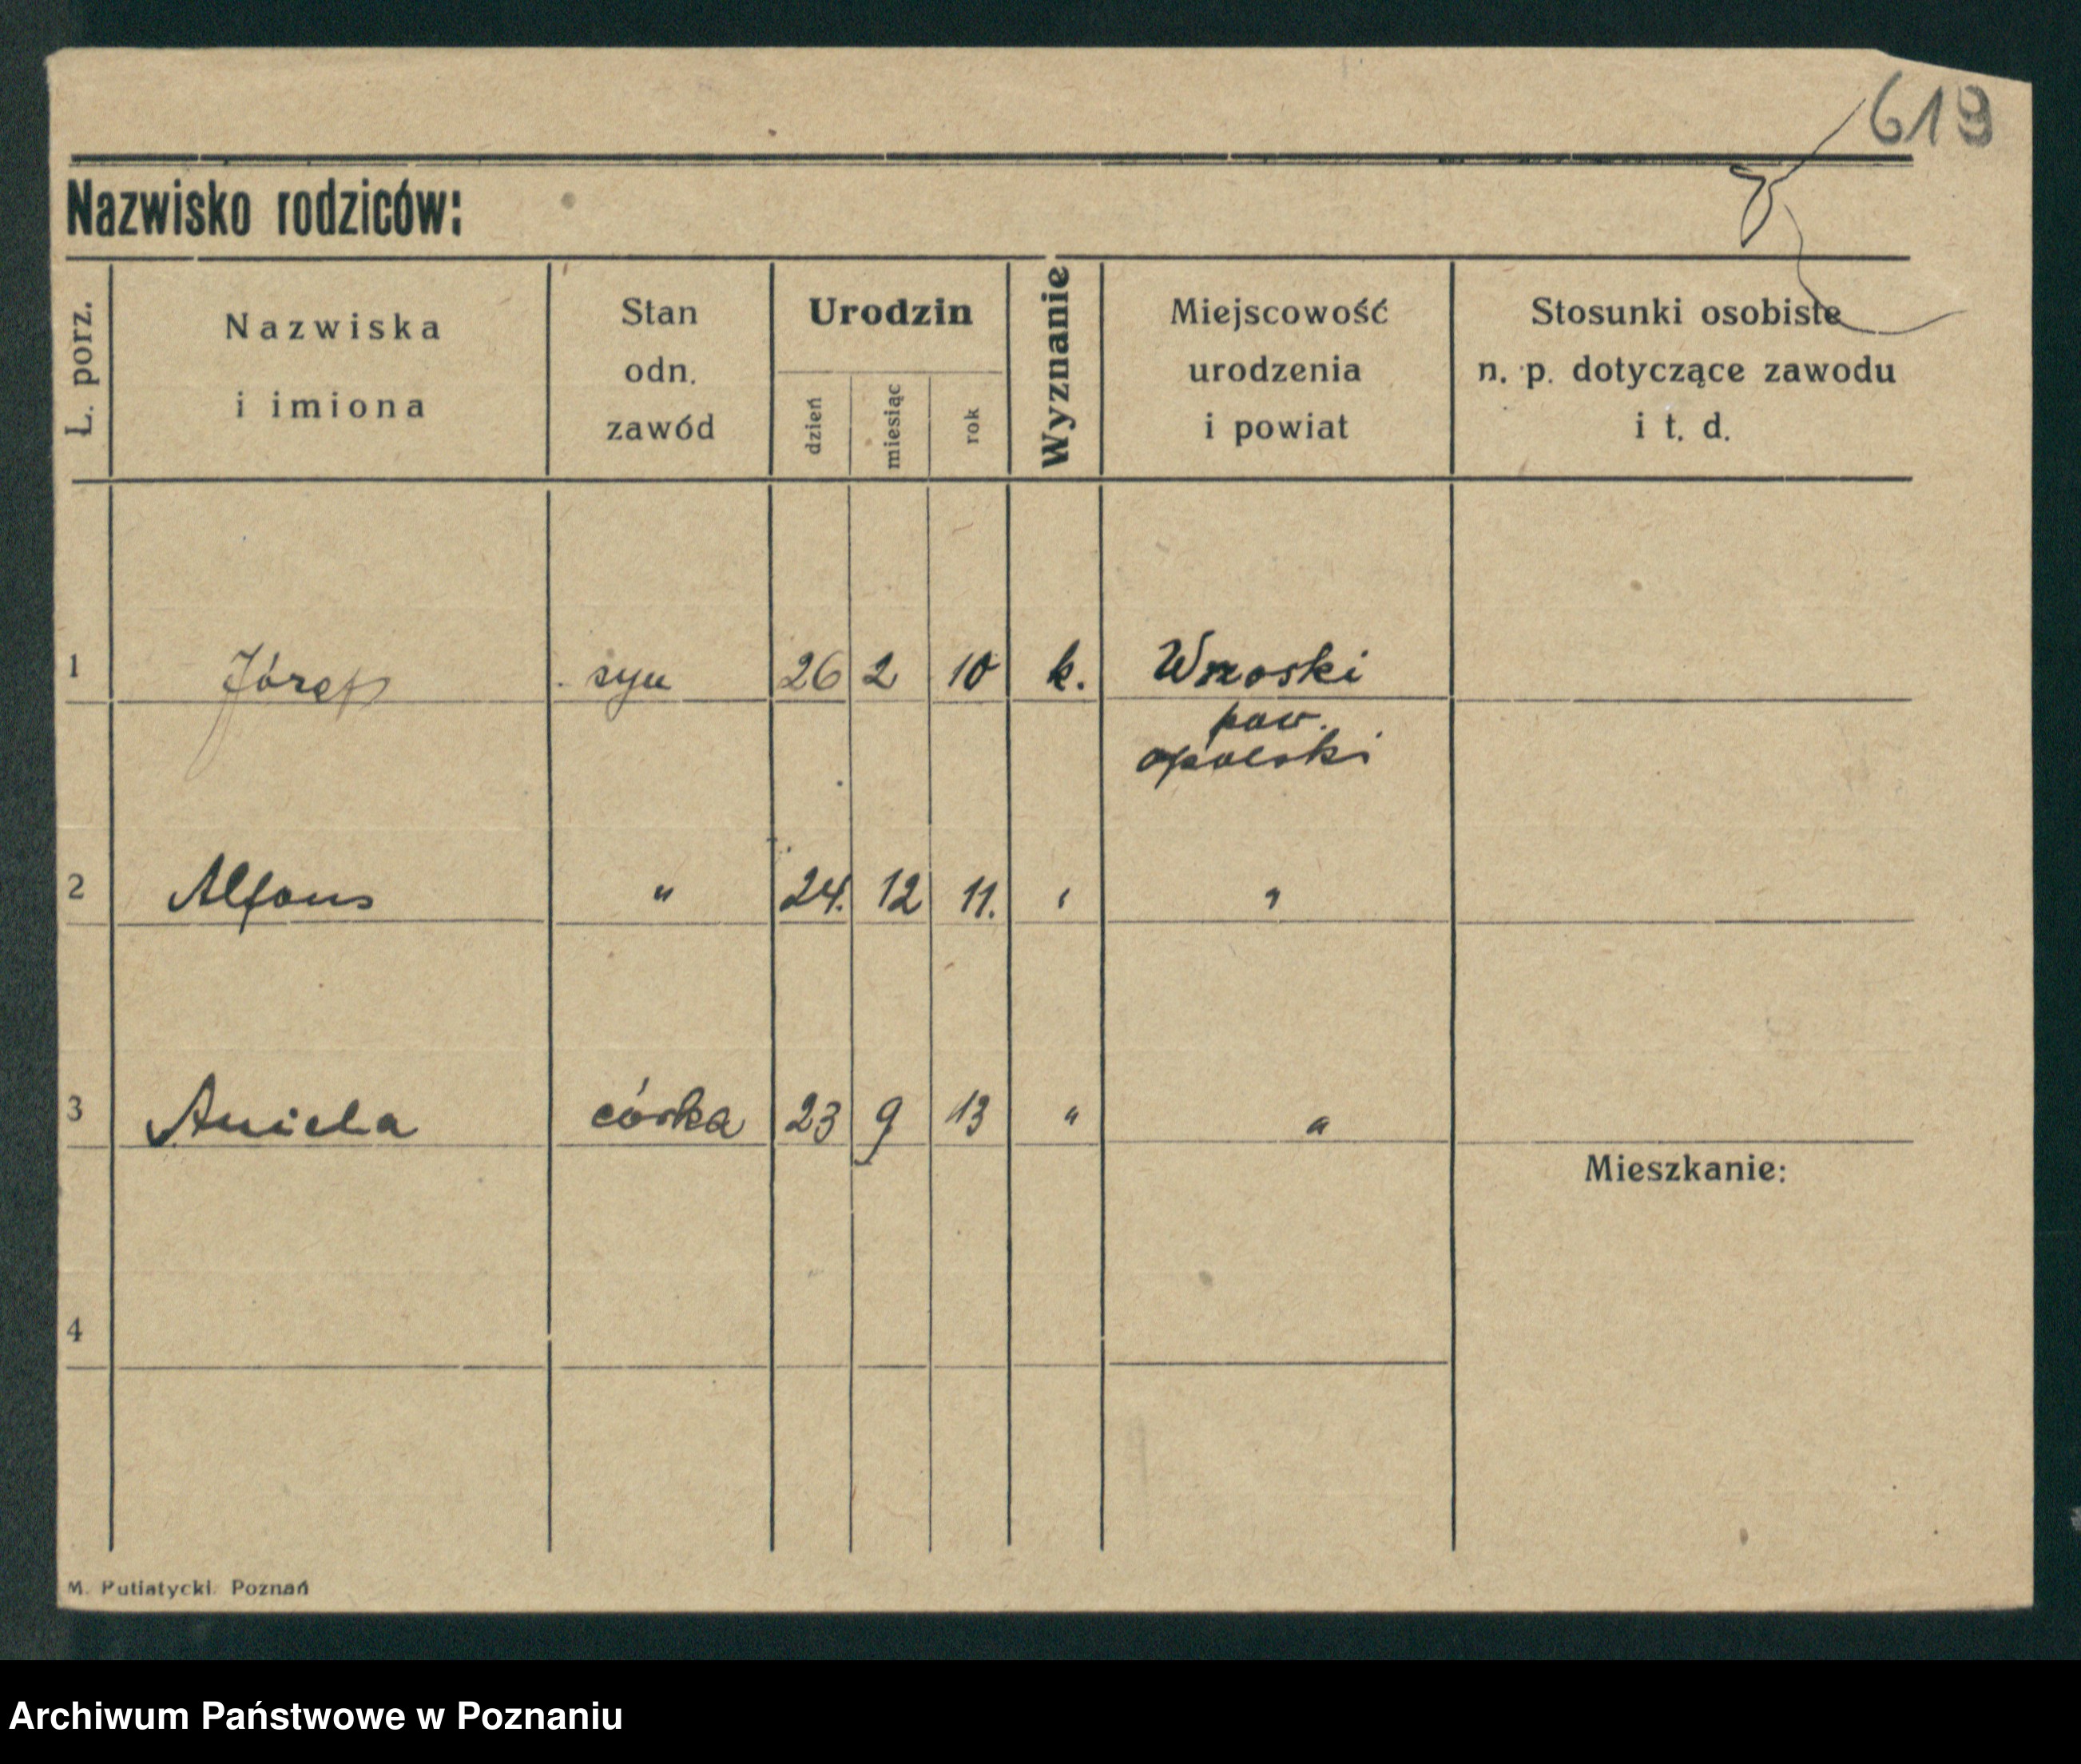 619
Nazwisko rodziców:
L. porz.
Nazwiska
i imiona
Stan
odn.
zawód
Urodzin
dzień
miesiąc
rok
Wyznanie
Miejscowość
urodzenia
i powiat
Stosunki osobiste
n. p. dotyczące zawodu
i t. d.
1 Józef syn 26 2 10 k. Wrzoski
pow.
opolski
2 Alfons " 24. 12 11. " "
3 Aniela córka 23 9 13 " "
Mieszkanie:
4
M. Putiatycki Poznań
Archiwum Państwowe w Poznaniu